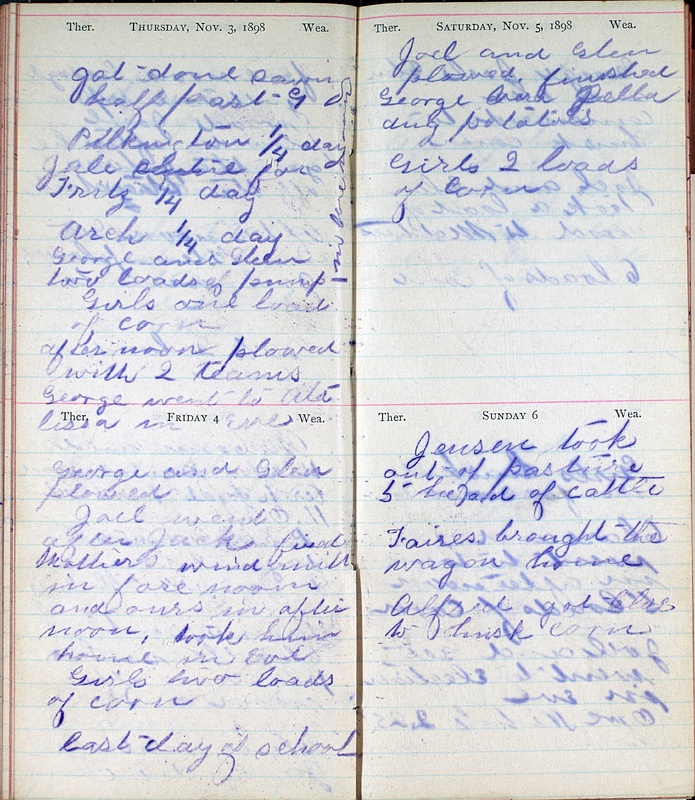 Ther. THURSDAY, NOV. 3, 1898 Wea.
got done
half past 9
Pilkington 1/4 day
for
Fritz 1/4 day
Arch 1/4 day
George and Glen
two loads of pump
Girls one load
of corn
after noon plowed
with 2 teams
George went to Ata
lissa in Eve
Ther. FRIDAY 4 Wea.
George and Glen
plowed
Joel went
after Jack fixed
Mothers wind mill
in fore noon
and ours in after
noon, took him
home in Eve
Girls two loads
of corn
Last day of school
Ther. SATURDAY, NOV. 5, 1898 Wea.
Joel and Glen
plowed, finished
George and Della
dug potatoes
Girls 2 loads
of corn
Ther. SUNDAY 6 Wea.
Jensen took
out of pasture
5 head of cattle
Faires brought the
wagon home
Alford got
to husk corn